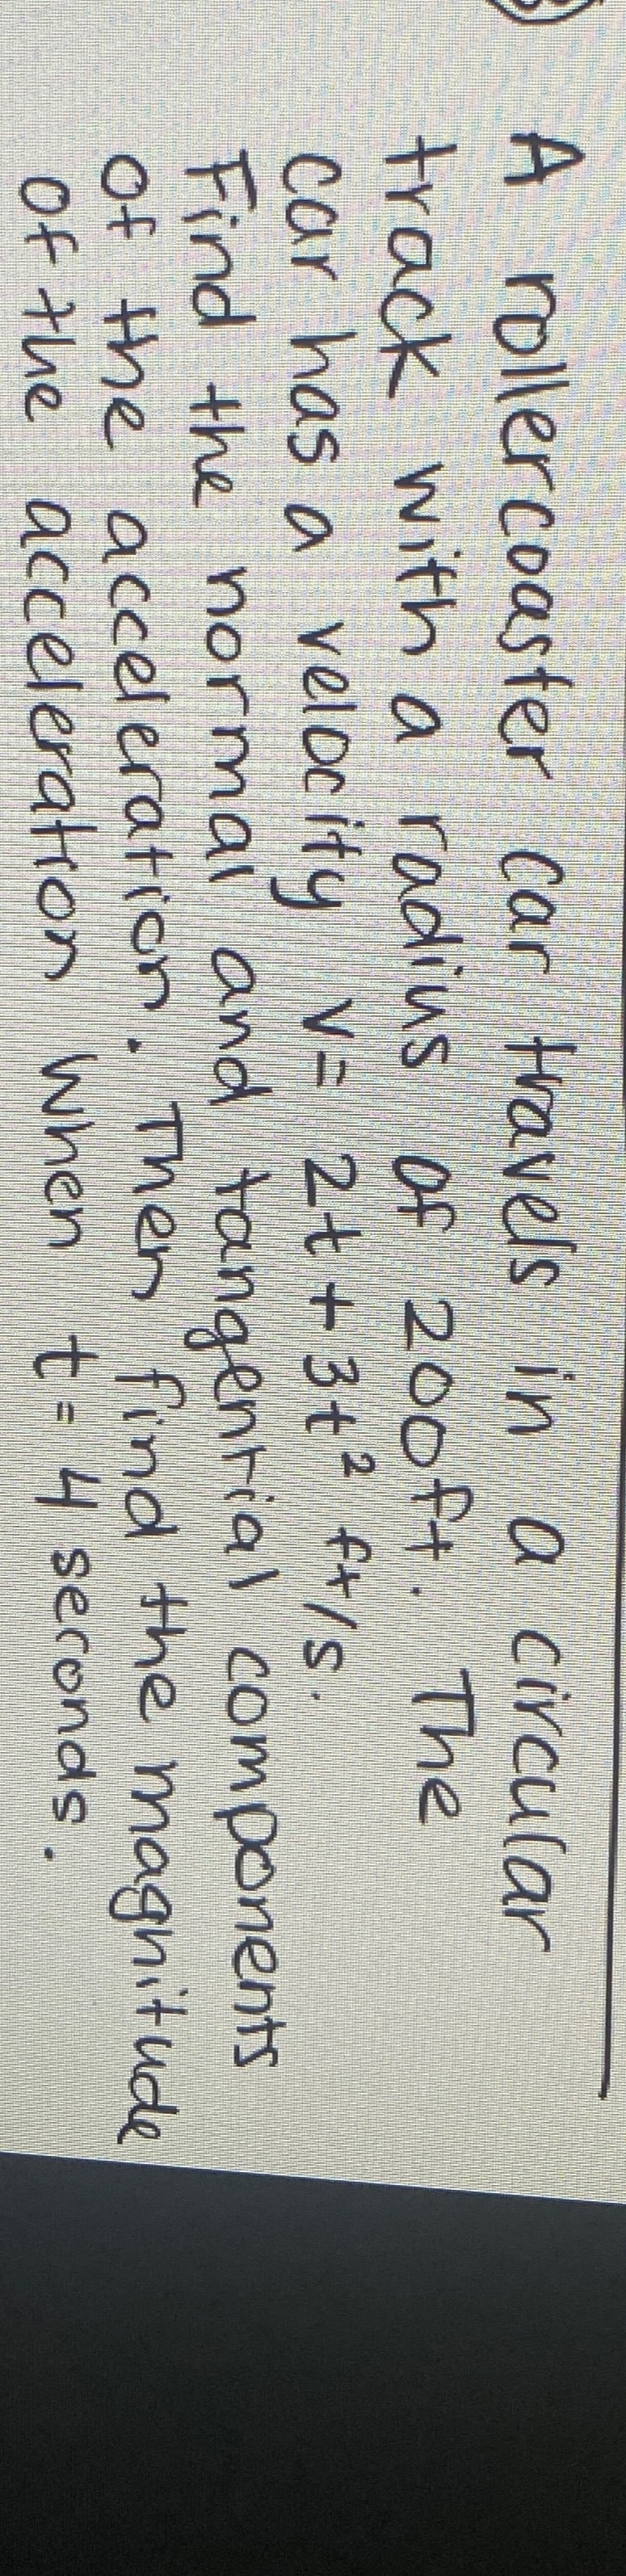 A rollercoaster car travels in a circular
track with a radius of 200ft. The
car has a velocity v= 2t + 3t² ft/s.
Find the normal and tangential components
of the acceleration. Then find the magnitude
of the acceleration when t= 4 seconds.